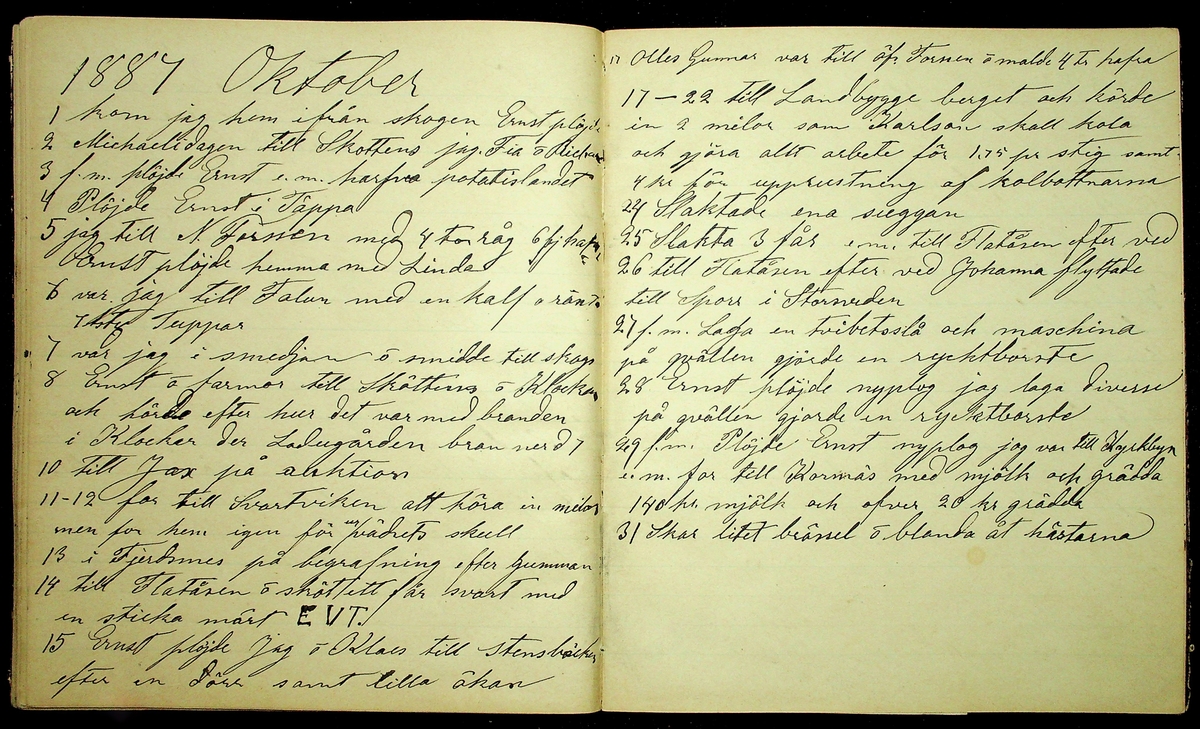 1887 Oktober
1 kom jag hem ifrån skogen Ernst plöjde
2 Michaelidagen till Skottens jag. Fia o
3 f.m. plöjde Ernst e.m. harfva potatislandet
4 Plöjde Ernst i Täppa
5 jag till N. Forssen med 4 tr råg 6 fj hafr
Ernst plöjde hemma med Linda
6 var jag till Falun med en kalf o
7 Tuppar
7 var jag i smedjan o smidde till skogs
8 Ernst o farmor till Sköttens o Klockar
och hörde efter hur det var med branden
i Klockar der Ladugården bran nerd 7
10 till Jax på auktion
11-12 for till Svartviken att köra in milor
men for hem igen för vädrets skull
13 i Fjerdsmes på begrafning efter Gumman
14 till Flatåsen o sköttett får svart med
en sticka märt EVT.
15 Ernst plöjde Jag o Klaes till Stensbäcken
efter en dörr samt lilla åkan
17 Olles Gunnar var till öfr Forssen o malde 4 tr hafra
17-22 till Landbygge berget och körde
in 2 milor som Karlson skall kola
och gjöra allt arbete för 1.75 pr stig samt
4 kr för upprustning af kolbottnarna
24 Slaktade ena sueggan
25 Slakta 3 får e.m. till Flatåsen efter ved
26 till Flatåsen efter ved Johanna flyttade
till Sporr i Störneden
27 f.m. Laga en tvibetsslå och maschina
på qvällen gjorde en rycktborste
28 Ernst plöjde nyplog jag laga diverse
på qvällen gjorde en ryctatborste
29 f.m. Plöjde Ernst nyplog jag var till Kyrkbyn
e.m. for till Kornäs med mjölk och grädda
140 kr mjölk och öfver 20 kr grädda
31 Skar litet brånsel o blanda åt hästarna